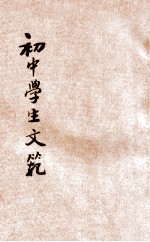 初中學生文範